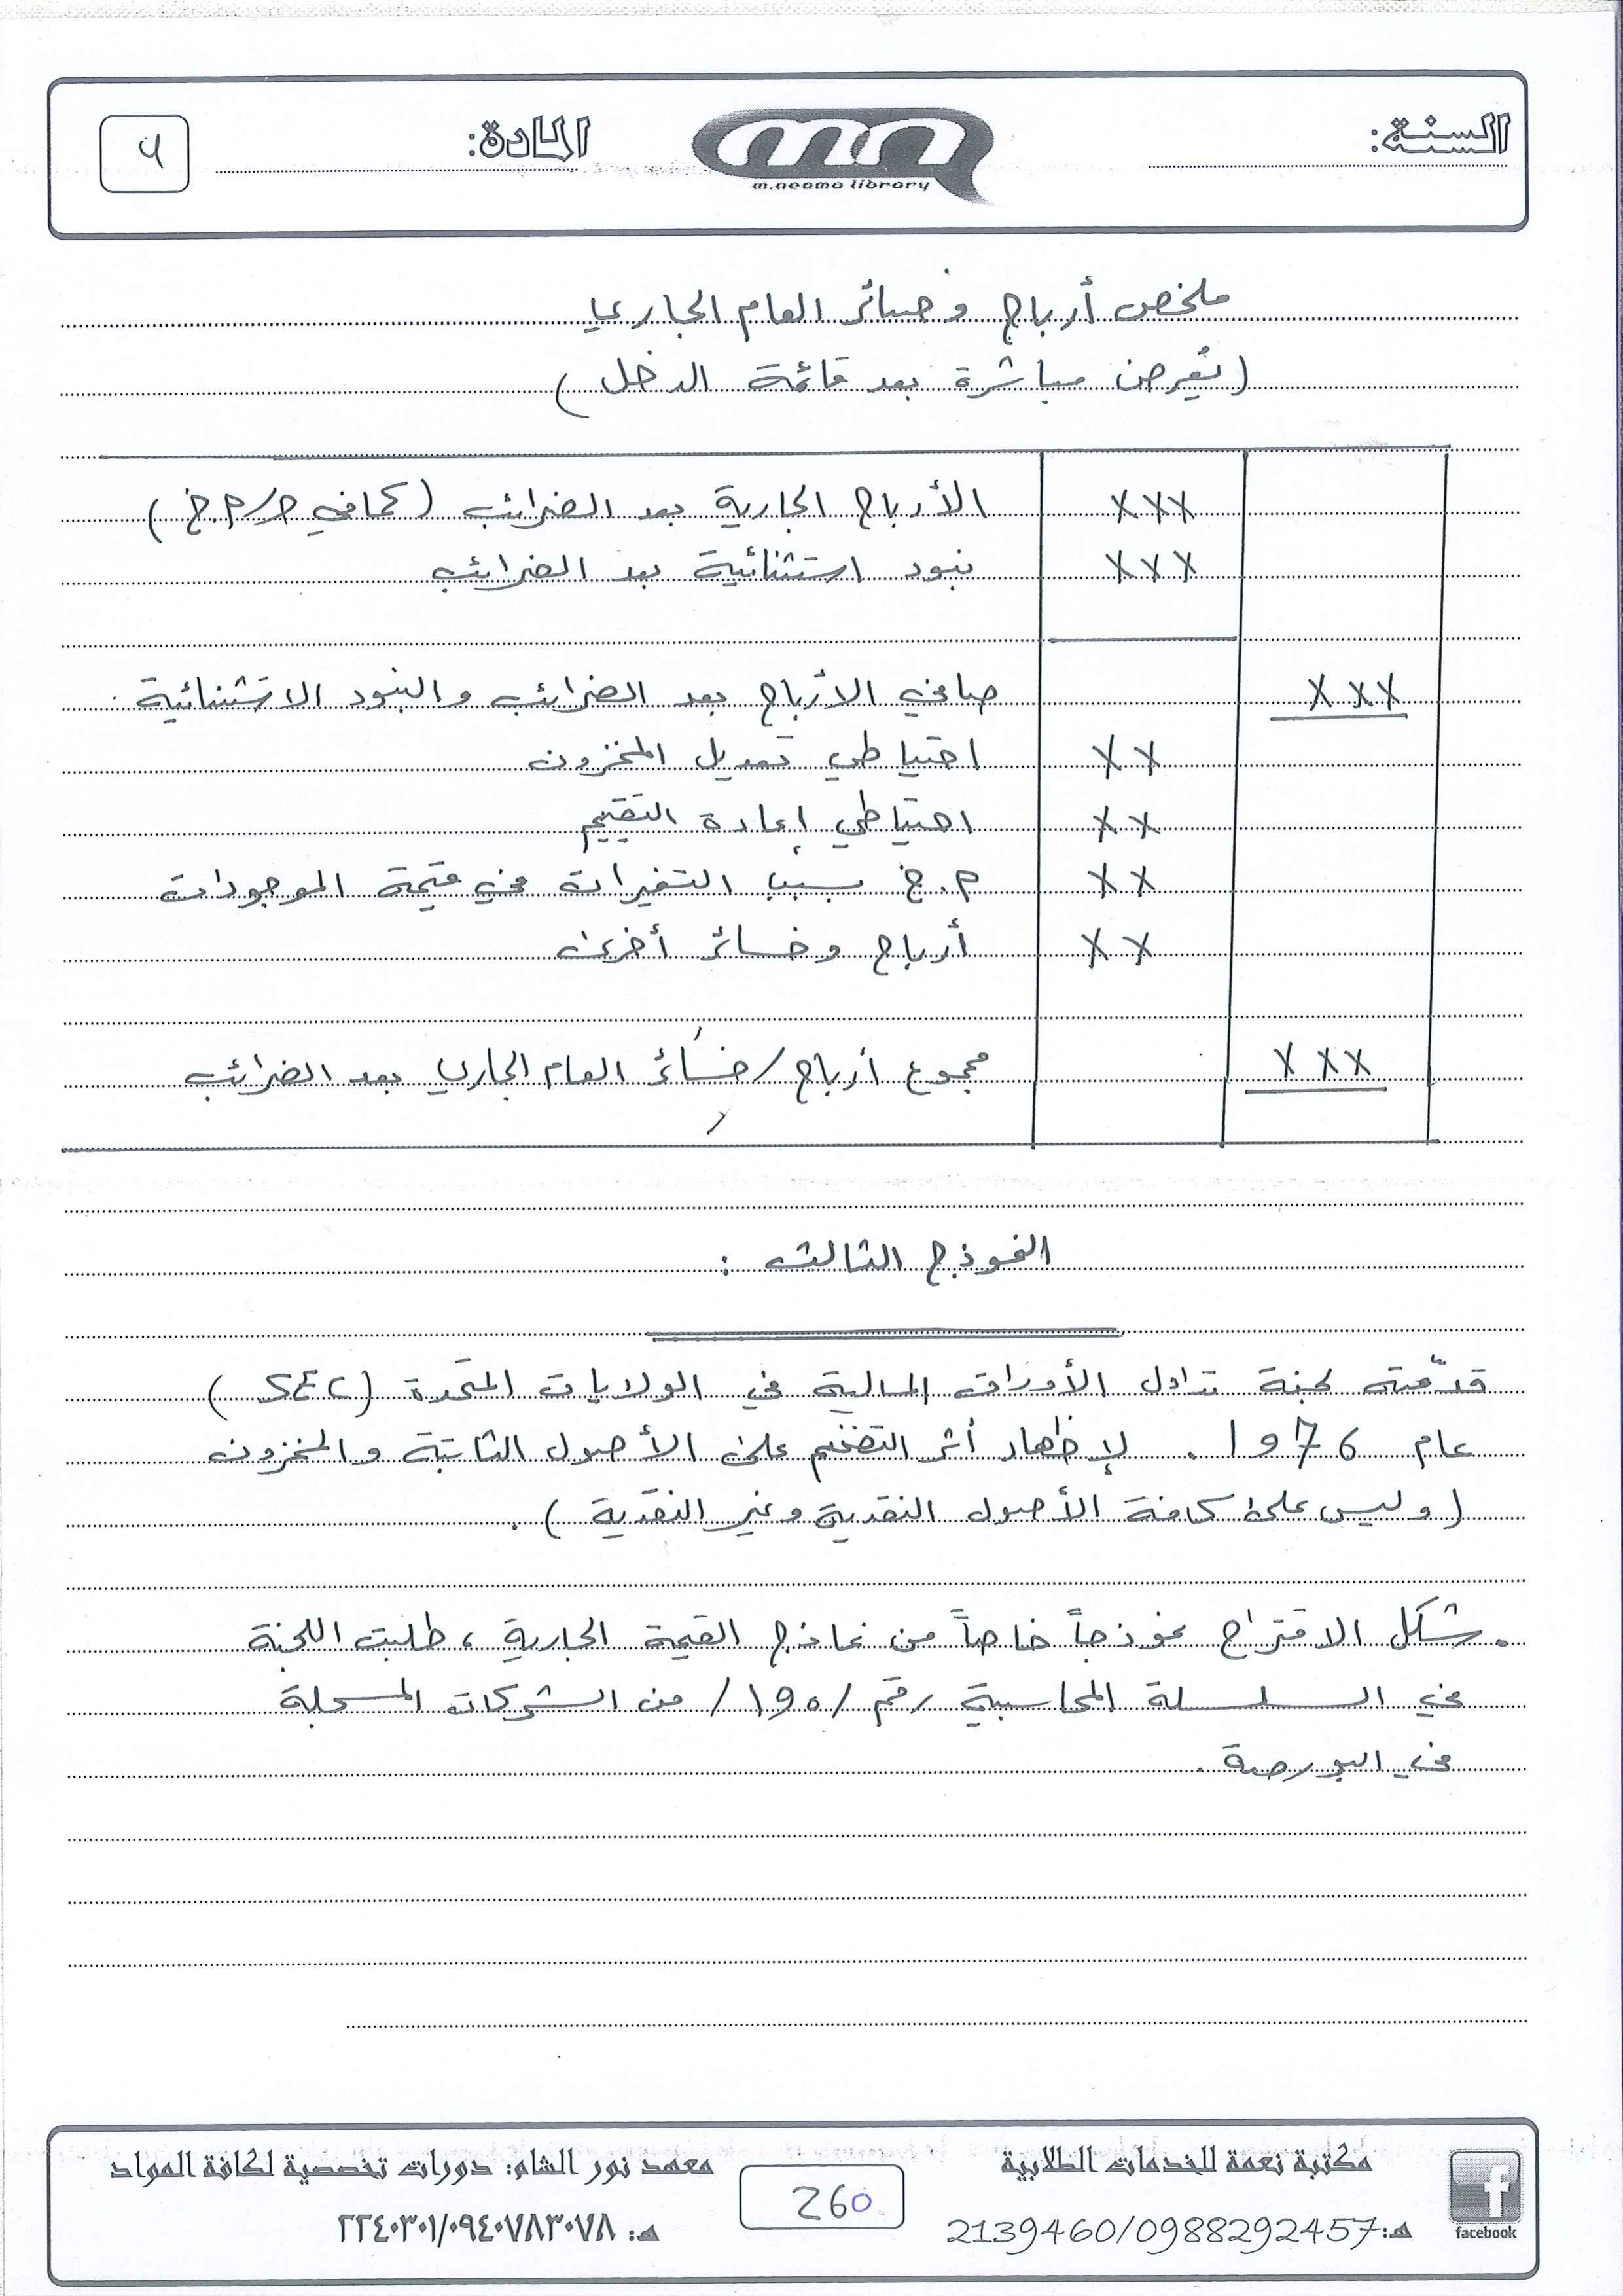 السنة:
mn
m.neama library
المادة:
٩
ملخص أرباح وخسائر العام الجاري
(تُعرض مباشرة بعد قائمة الدخل)
الأرباح الجارية بعد الضرائب (كما في ح/م.خ) XXX
بنود استثنائية بعد الضرائب XXX
صافي الأرباح بعد الضرائب والبنود الاستثنائية XXX
احتياطي تعديل المخزون XX
احتياطي إعادة التقييم XX
م.خ بسبب التغيرات في قيمة الموجودات XX
أرباح وخسائر أخرى XX
مجموع أرباح/خسائر العام الجاري بعد الضرائب XXX
النموذج الثالث :
قدّمته لجنة تداول الأوراق المالية في الولايات المتحدة (SEC)
عام 1976 . لإظهار أثر التضخم على الأصول الثابتة والمخزون
(وليس على كافة الأصول النقدية وغير النقدية) .
. شكل الاقتراح نموذجاً خاصاً من نماذج القيمة الجارية ، طلبت اللجنة
في السلسلة المحاسبية رقم /190/ من الشركات المسجلة
في البورصة .
مكتبة نعمة للخدمات الطلابية
هـ:2139460/0988292457
facebook
260
معهد نور الشام: دورات تخصصية لكافة المواد
هـ: ٢٢٤٠٣٠١/٠٩٤٠٧٨٣٠٧٨